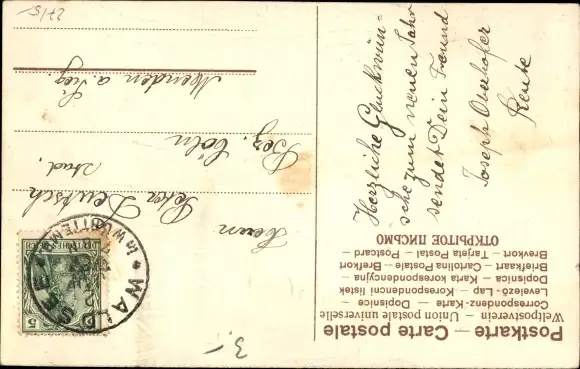 Postkarte — Carte postale
Weltpostverein — Union postale universelle
Correspondenz-Karte — Dopisnice
Levelező-Lap — Korespondencni listek
Dopisnica — Karta korespondencyjna
Briefkaart — Cartolina Postale — Brefkort
Brevkort — Tarjeta Postal — Postcard
ОТКРЫТОЕ ПИСЬМО
DEUTSCHES REICH
5
WALDSEE
in WÜRTTEM
Herrn
Peter Deutsch
stud.
Bez. Cöln
Menden a. Sieg.
Herzliche Glückwün-
sche zum neuen Jahr
sendet Dein Freund
Joseph Oberhofer
Reute
3.-
27/5